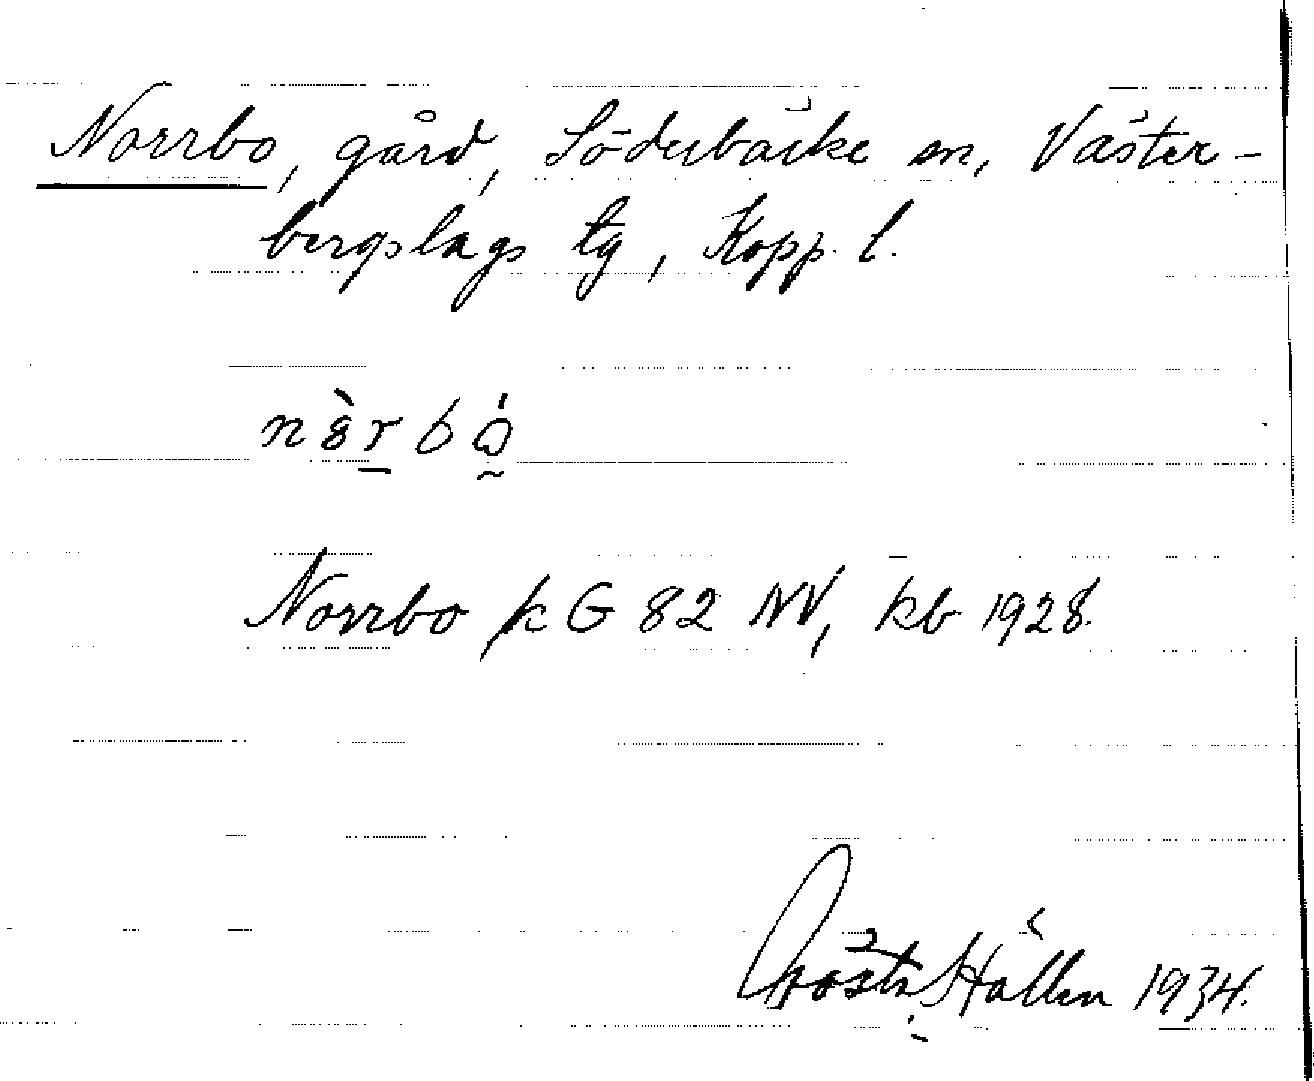 Norrbo, gård, Söderbärke sn, Väster-
bergslags tg, Kopp. l.
Norrbo k G 82 NV, kb 1928.
Gösta Hållen 1934.